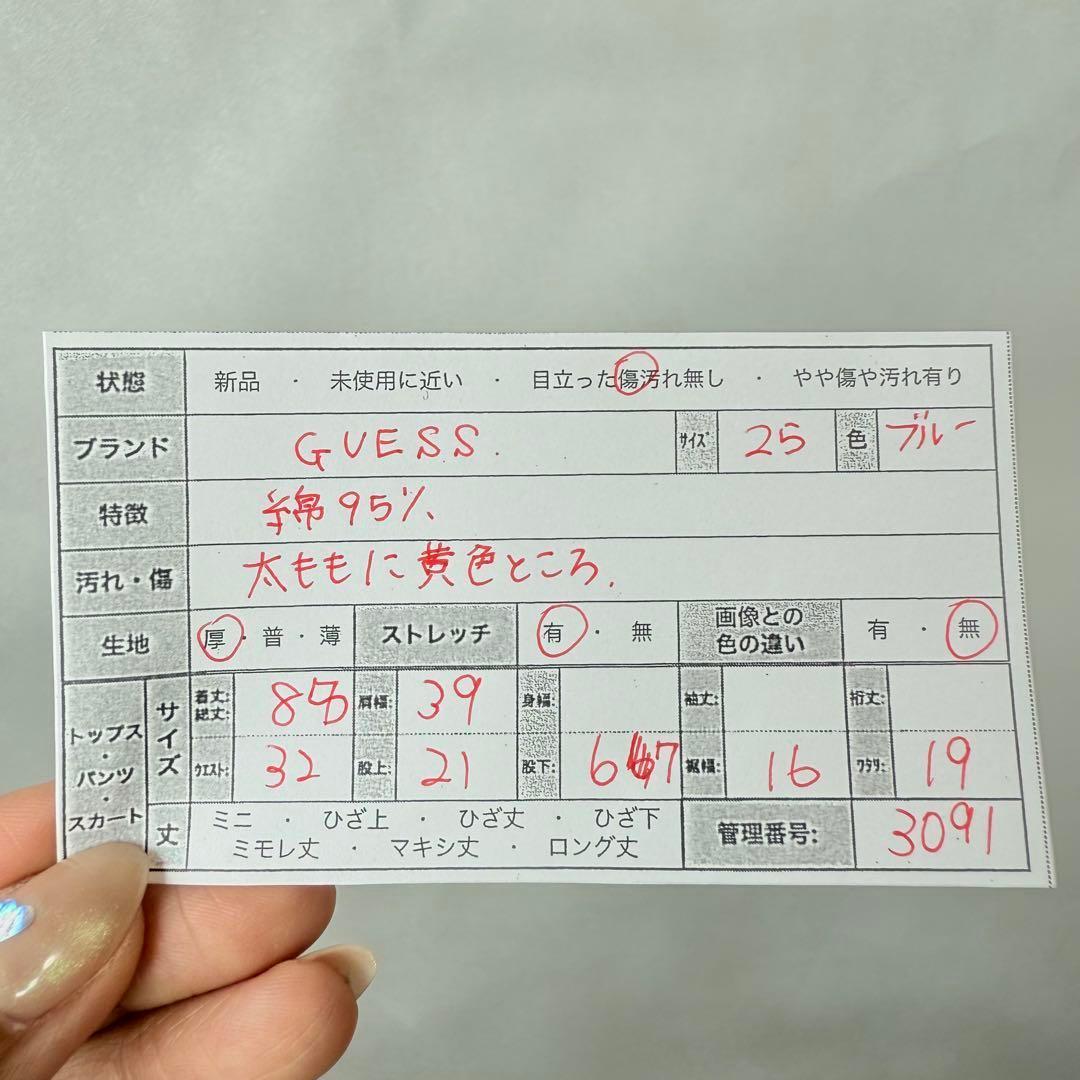 状態 新品 ・ 未使用に近い ・ 目立った傷汚れ無し ・ やや傷や汚れ有り
ブランド GUESS. サイズ 25 色 ブルー
特徴 綿95%
汚れ・傷 太ももに黄色ところ.
生地 厚・普・薄 ストレッチ 有・無 画像との色の違い 有・無
トップス・パンツ・スカート サイズ 着丈: 総丈: 肩幅: 39 身幅: 袖丈: 裄丈:
ウエスト: 32 股上: 21 股下: 裾幅: 16 ワタリ: 19
丈 ミニ ・ ひざ上 ・ ひざ丈 ・ ひざ下
ミモレ丈 ・ マキシ丈 ・ ロング丈 管理番号: 3091